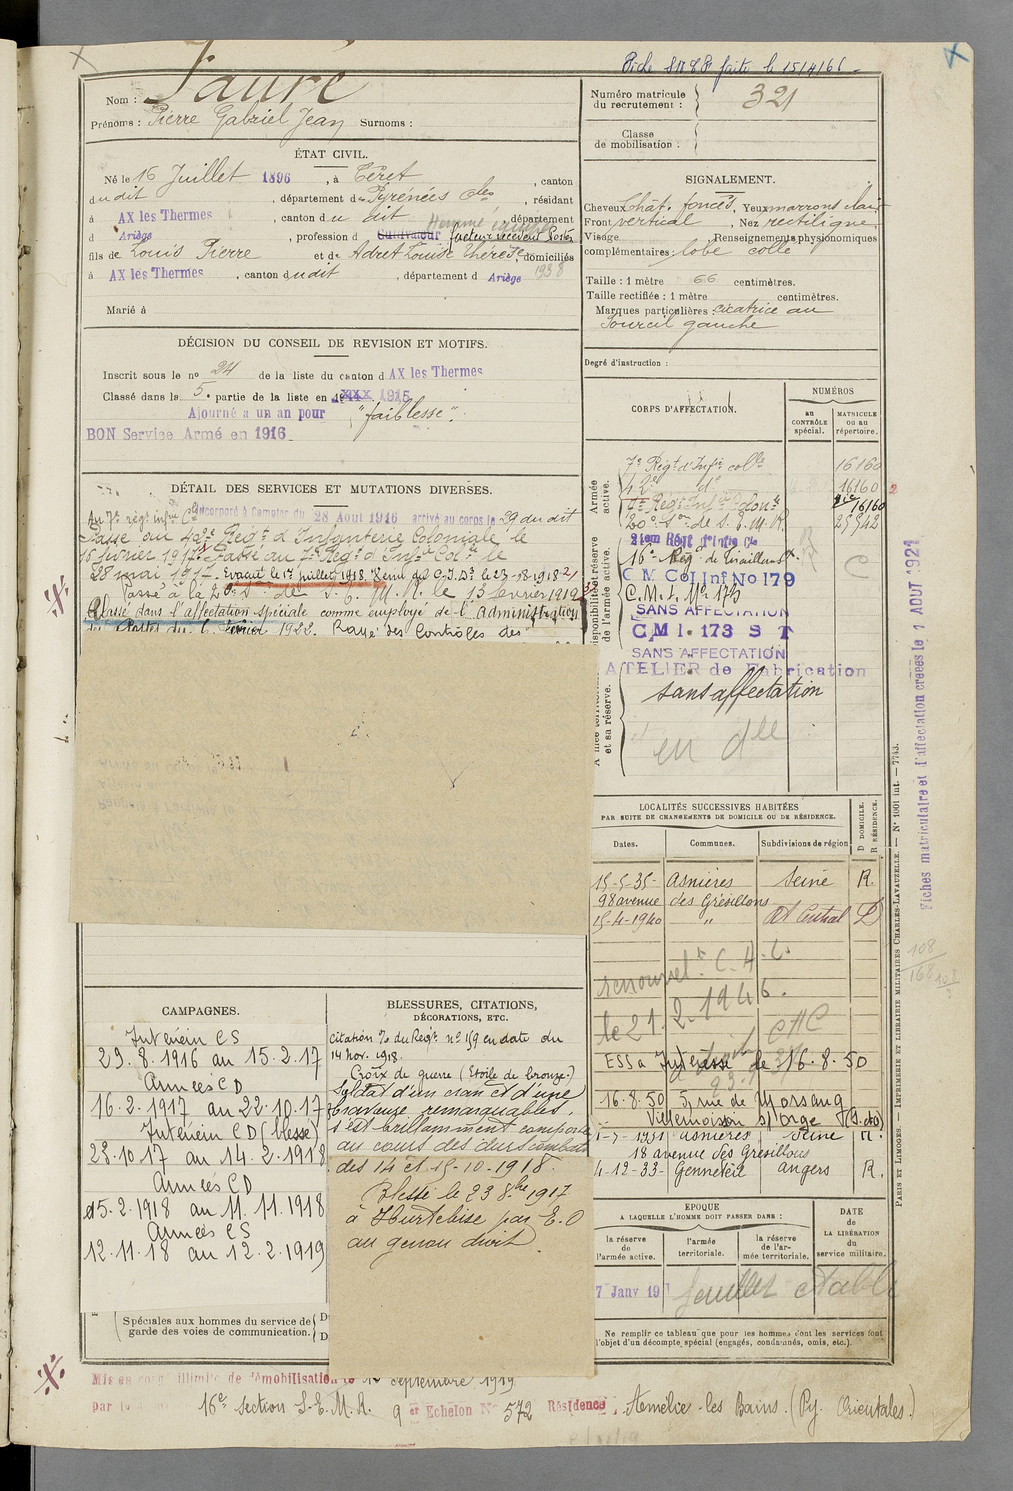 Fiche faite le 15/4/66
Nom : Fauré
Prénoms : Pierre Gabriel Jean Surnoms :
Numéro matricule du recrutement : 321
Classe de mobilisation :
ÉTAT CIVIL.
Né le 16 Juillet 1896, à Céret, canton
dudit, département des Pyrénées Oles, résidant
à AX les Thermes, canton du dit, département
d Ariège, profession d Cultivateur facteur receveur Postes
fils de Louis Pierre et de Adret Louise Thérèse, domiciliés
à AX les Thermes, canton dudit, département d Ariège 1938
Marié à
SIGNALEMENT.
Cheveux Chât. foncés, Yeux marrons clair
Front vertical, Nez rectiligne
Visage Renseignements physionomiques
complémentaires : lobe collé
Taille : 1 mètre 66 centimètres.
Taille rectifiée : 1 mètre centimètres.
Marques particulières : cicatrice au
sourcil gauche
Degré d'instruction :
DÉCISION DU CONSEIL DE REVISION ET MOTIFS.
Inscrit sous le no 24 de la liste du canton d AX les Thermes
Classé dans la 5e partie de la liste en 1915
Ajourné a un an pour "faiblesse".
BON Service Armé en 1916
DÉTAIL DES SERVICES ET MUTATIONS DIVERSES.
Au 7e régt infie Cle Incorporé à compter du 28 Aout 1916 arrivé au corps le 29 du dit
Passé au 42e Régt d'Infanterie Coloniale le
16 février 1917. Passé au 7e Régt d'Infie Colle le
28 mai 1917. Evacué le 1er juillet 1918. Remi du C.I.D. le 23-8-1918
Passé à la 20e Son de S.E.M.R. le 13 février 1919
Classé dans l'affectation spéciale comme employé de l'Administration
des Postes du 1922. Rayé des Contrôles des
CORPS D'AFFECTATION.
NUMÉROS
au CONTRÔLE spécial.
MATRICULE ou au répertoire.
Armée active.
7e Régt d'Infie colle 16160
42e do 16160
7e Régt Infie Colonle 16160
20e Son de S.E.M.R. 25942
Disponibilité et réserve de l'armée active.
21em Régt d'Infie Cle
16e Rég. de Tirailleurs
C M Col Inf No 179
C.M.I. No 173
SANS AFFECTATION
C M I. 173 S T
SANS AFFECTATION
ATELIER de Fabrication
et sa réserve.
sans affectation
en dlle
Fiches matriculaire et d'affectation créées le 1 AOUT 1921
LOCALITÉS SUCCESSIVES HABITÉES
PAR SUITE DE CHANGEMENTS DE DOMICILE OU DE RÉSIDENCE.
Dates. Communes. Subdivisions de région D DOMICILE. R RÉSIDENCE.
15-5-35- Asnières Seine R.
98 avenue des Grésillons
15-4-1940 " Central D
renouvelt C.H.C.
le 21.2.1946.
16.8.50
16.8.50 5, rue de Morsang
Villemoisson s/Orge (S.et O)
1-7-1931 asnières Seine R.
18 avenue des Grésillons
4-12-33- Genneteil angers R.
CAMPAGNES.
Intérieur CS
29.8.1916 au 15.2.17
Armées CD
16.2.1917 au 22.10.17
Intérieur CD (blessé)
23.10.17 au 14.2.1918
Armées CD
15.2.1918 au 11.11.1918
Armées CS
12.11.18 au 12.2.1919
Spéciales aux hommes du service de garde des voies de communication.
BLESSURES, CITATIONS,
DÉCORATIONS, ETC.
Citation % du Régt no 159 en date du
14 Nov. 1918.
Croix de guerre (Etoile de bronze.)
Soldat d'un cran et d'une
bravoure remarquables.
S'est brillamment comporté
au cours des durs combats
des 14 et 15-10-1918.
Blessé le 23 8bre 1917
à Hurtebise par E.O
au genou droit.
EPOQUE
A LAQUELLE L'HOMME DOIT PASSER DANS :
la réserve de l'armée active. l'armée territoriale. la réserve de l'armée territoriale.
DATE de LA LIBÉRATION du service militaire.
7 Janv 19 feuillet établi
Ne remplir ce tableau que pour les hommes dont les services font
l'objet d'un décompte spécial (engagés, condamnés, omis, etc.).
PARIS ET LIMOGES. — IMPRIMERIE ET LIBRAIRIE MILITAIRES CHARLES-LAVAUZELLE. — No 1001 int. — 7743.
Mis en congé illimité de démobilisation le septembre 1919
par la 16e section S.E.M.R. 9 er Echelon No 572 Résidence Amélie-les-Bains. (Py. Orientales.)